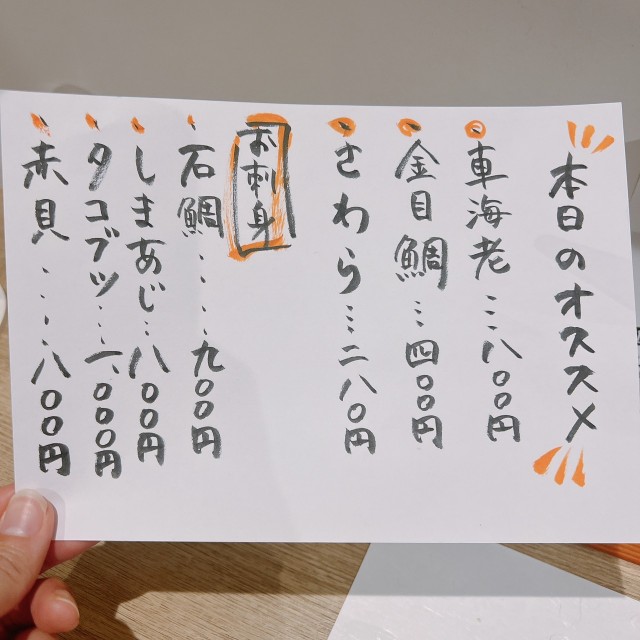 本日のオススメ
車海老…八〇〇円
金目鯛…四〇〇円
さわら…二八〇円
お刺身
石鯛……九〇〇円
しまあじ…八〇〇円
タコブツ…一、〇〇〇円
赤貝……八〇〇円